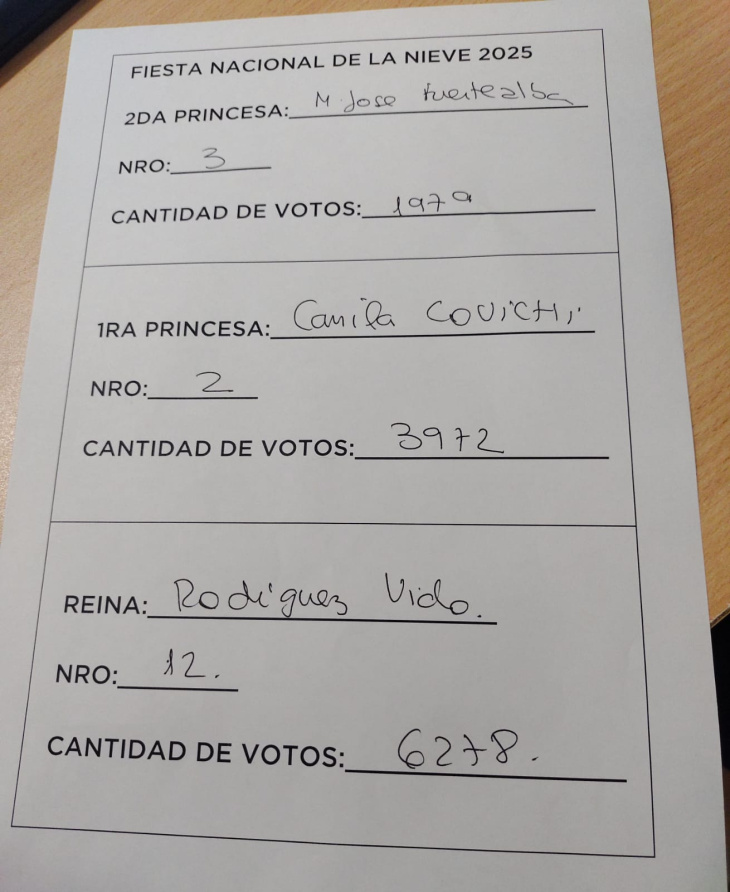 FIESTA NACIONAL DE LA NIEVE 2025
2DA PRINCESA: M. Jose Fuentealba
NRO: 3
CANTIDAD DE VOTOS: 1979
1RA PRINCESA: Camila COVICHI
NRO: 2
CANTIDAD DE VOTOS: 3972
REINA: Rodriguez Vido.
NRO: 12.
CANTIDAD DE VOTOS: 6278.